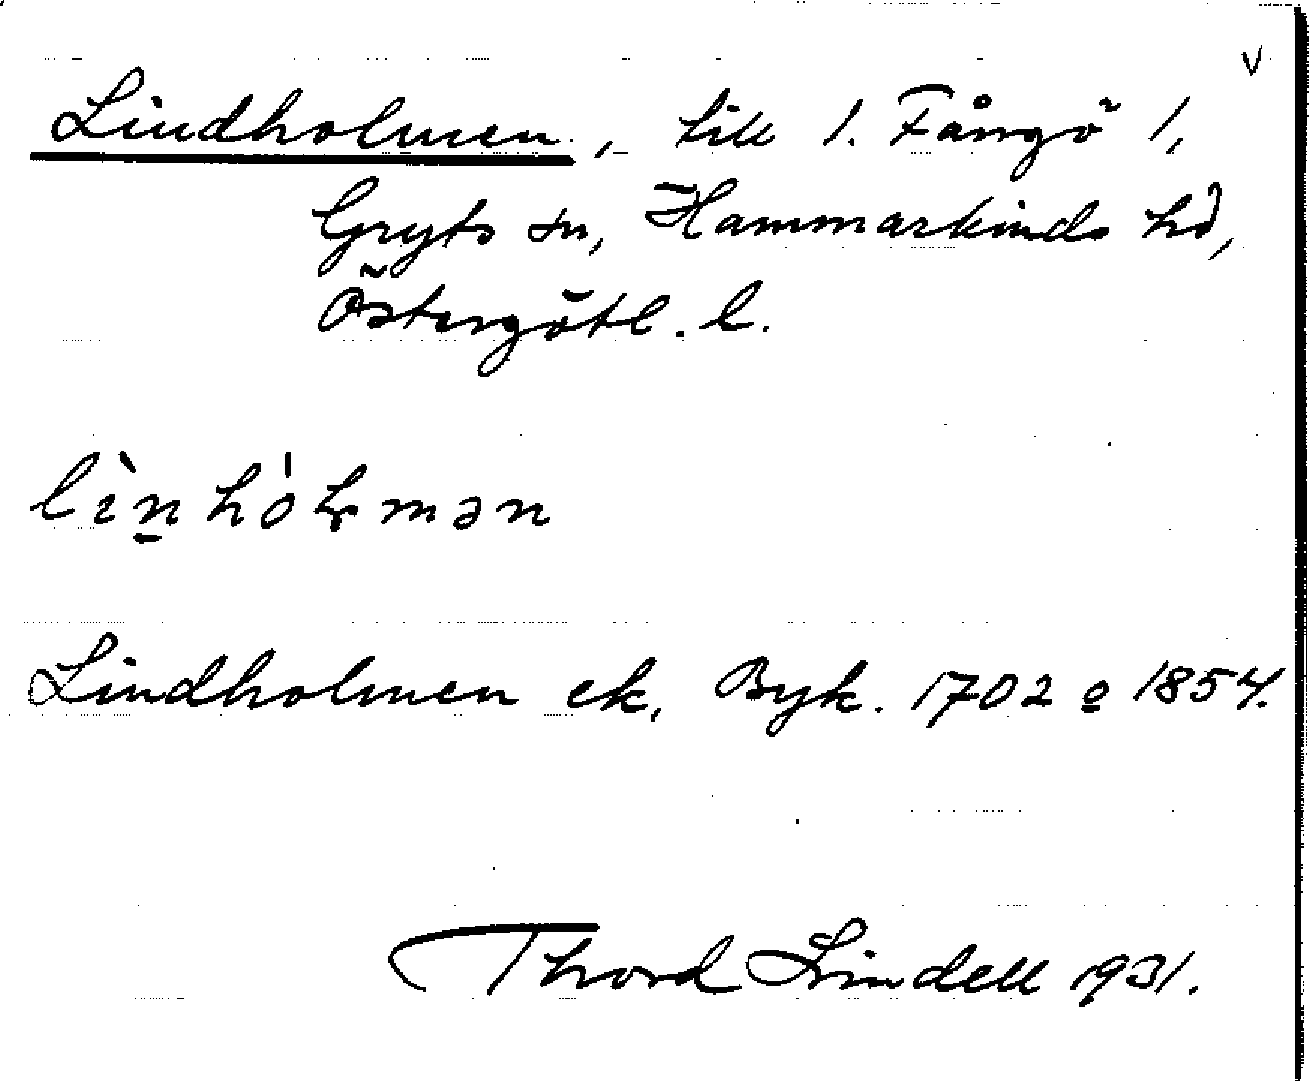 v
Lindholmen, till 1. Fångö 1,
Gryts sn, Hammarkinds hd,
Östergötl. l.
Lindholmen ek. Byk. 1702 o 1854.
Thord Lindell 1931.